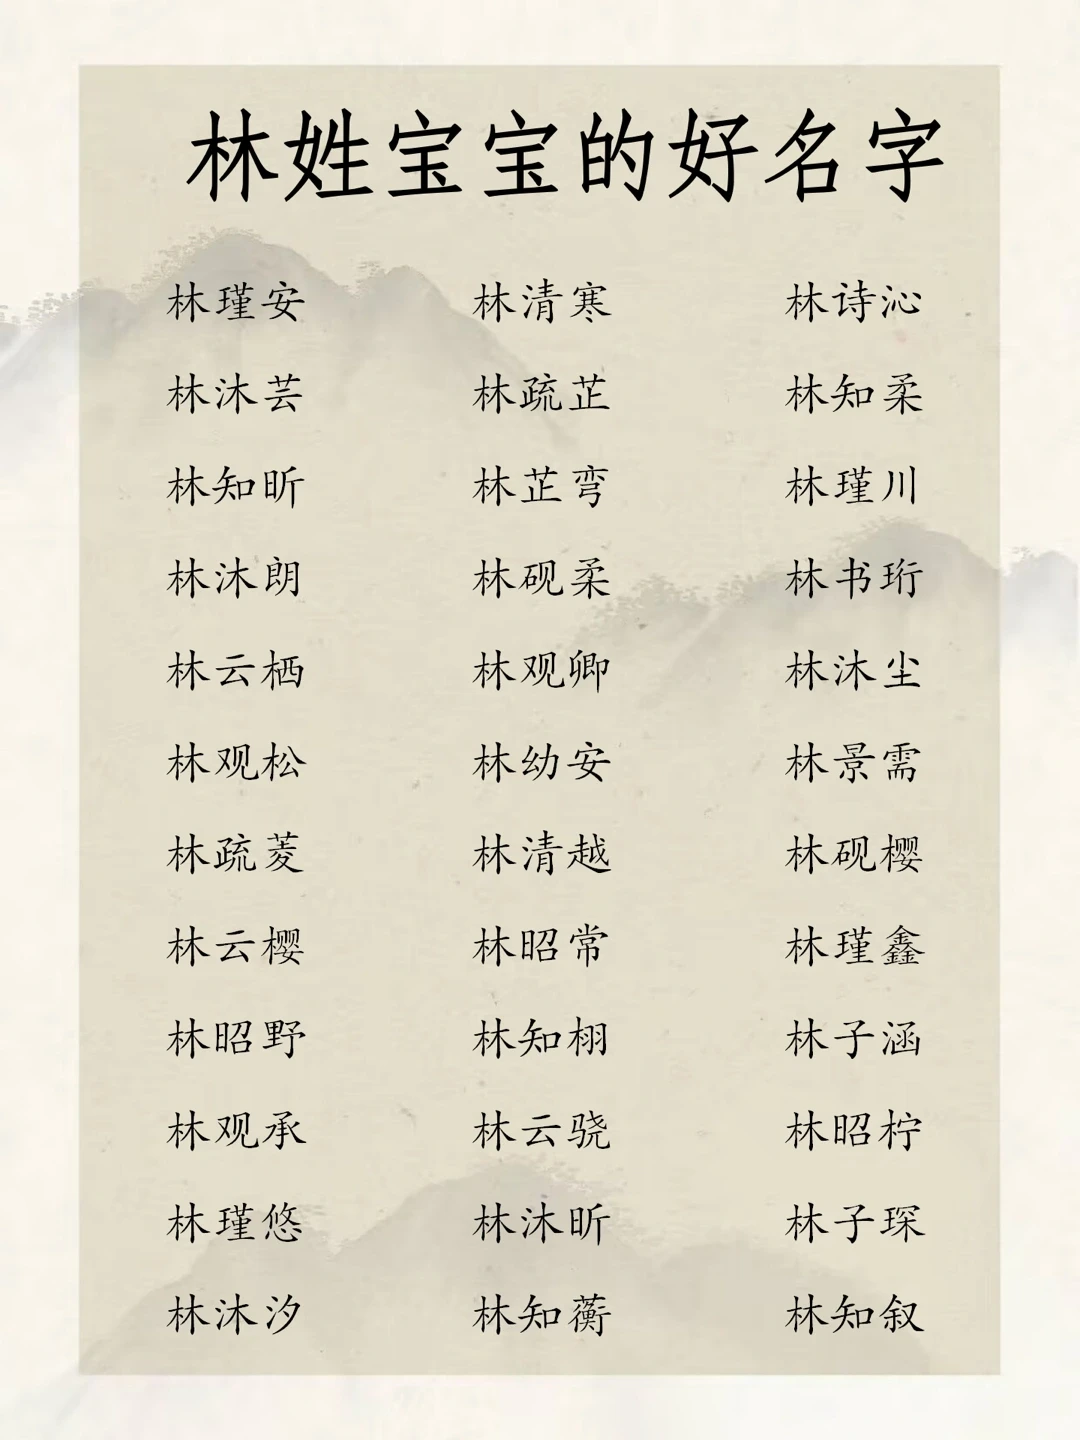 林姓宝宝的好名字
林瑾安 林清寒 林诗沁
林沐芸 林疏芷 林知柔
林知昕 林芷弯 林瑾川
林沐朗 林砚柔 林书珩
林云栖 林观卿 林沐尘
林观松 林幼安 林景需
林疏菱 林清越 林砚樱
林云樱 林昭常 林瑾鑫
林昭野 林知栩 林子涵
林观承 林云骁 林昭柠
林瑾悠 林沐昕 林子琛
林沐汐 林知蘅 林知叙